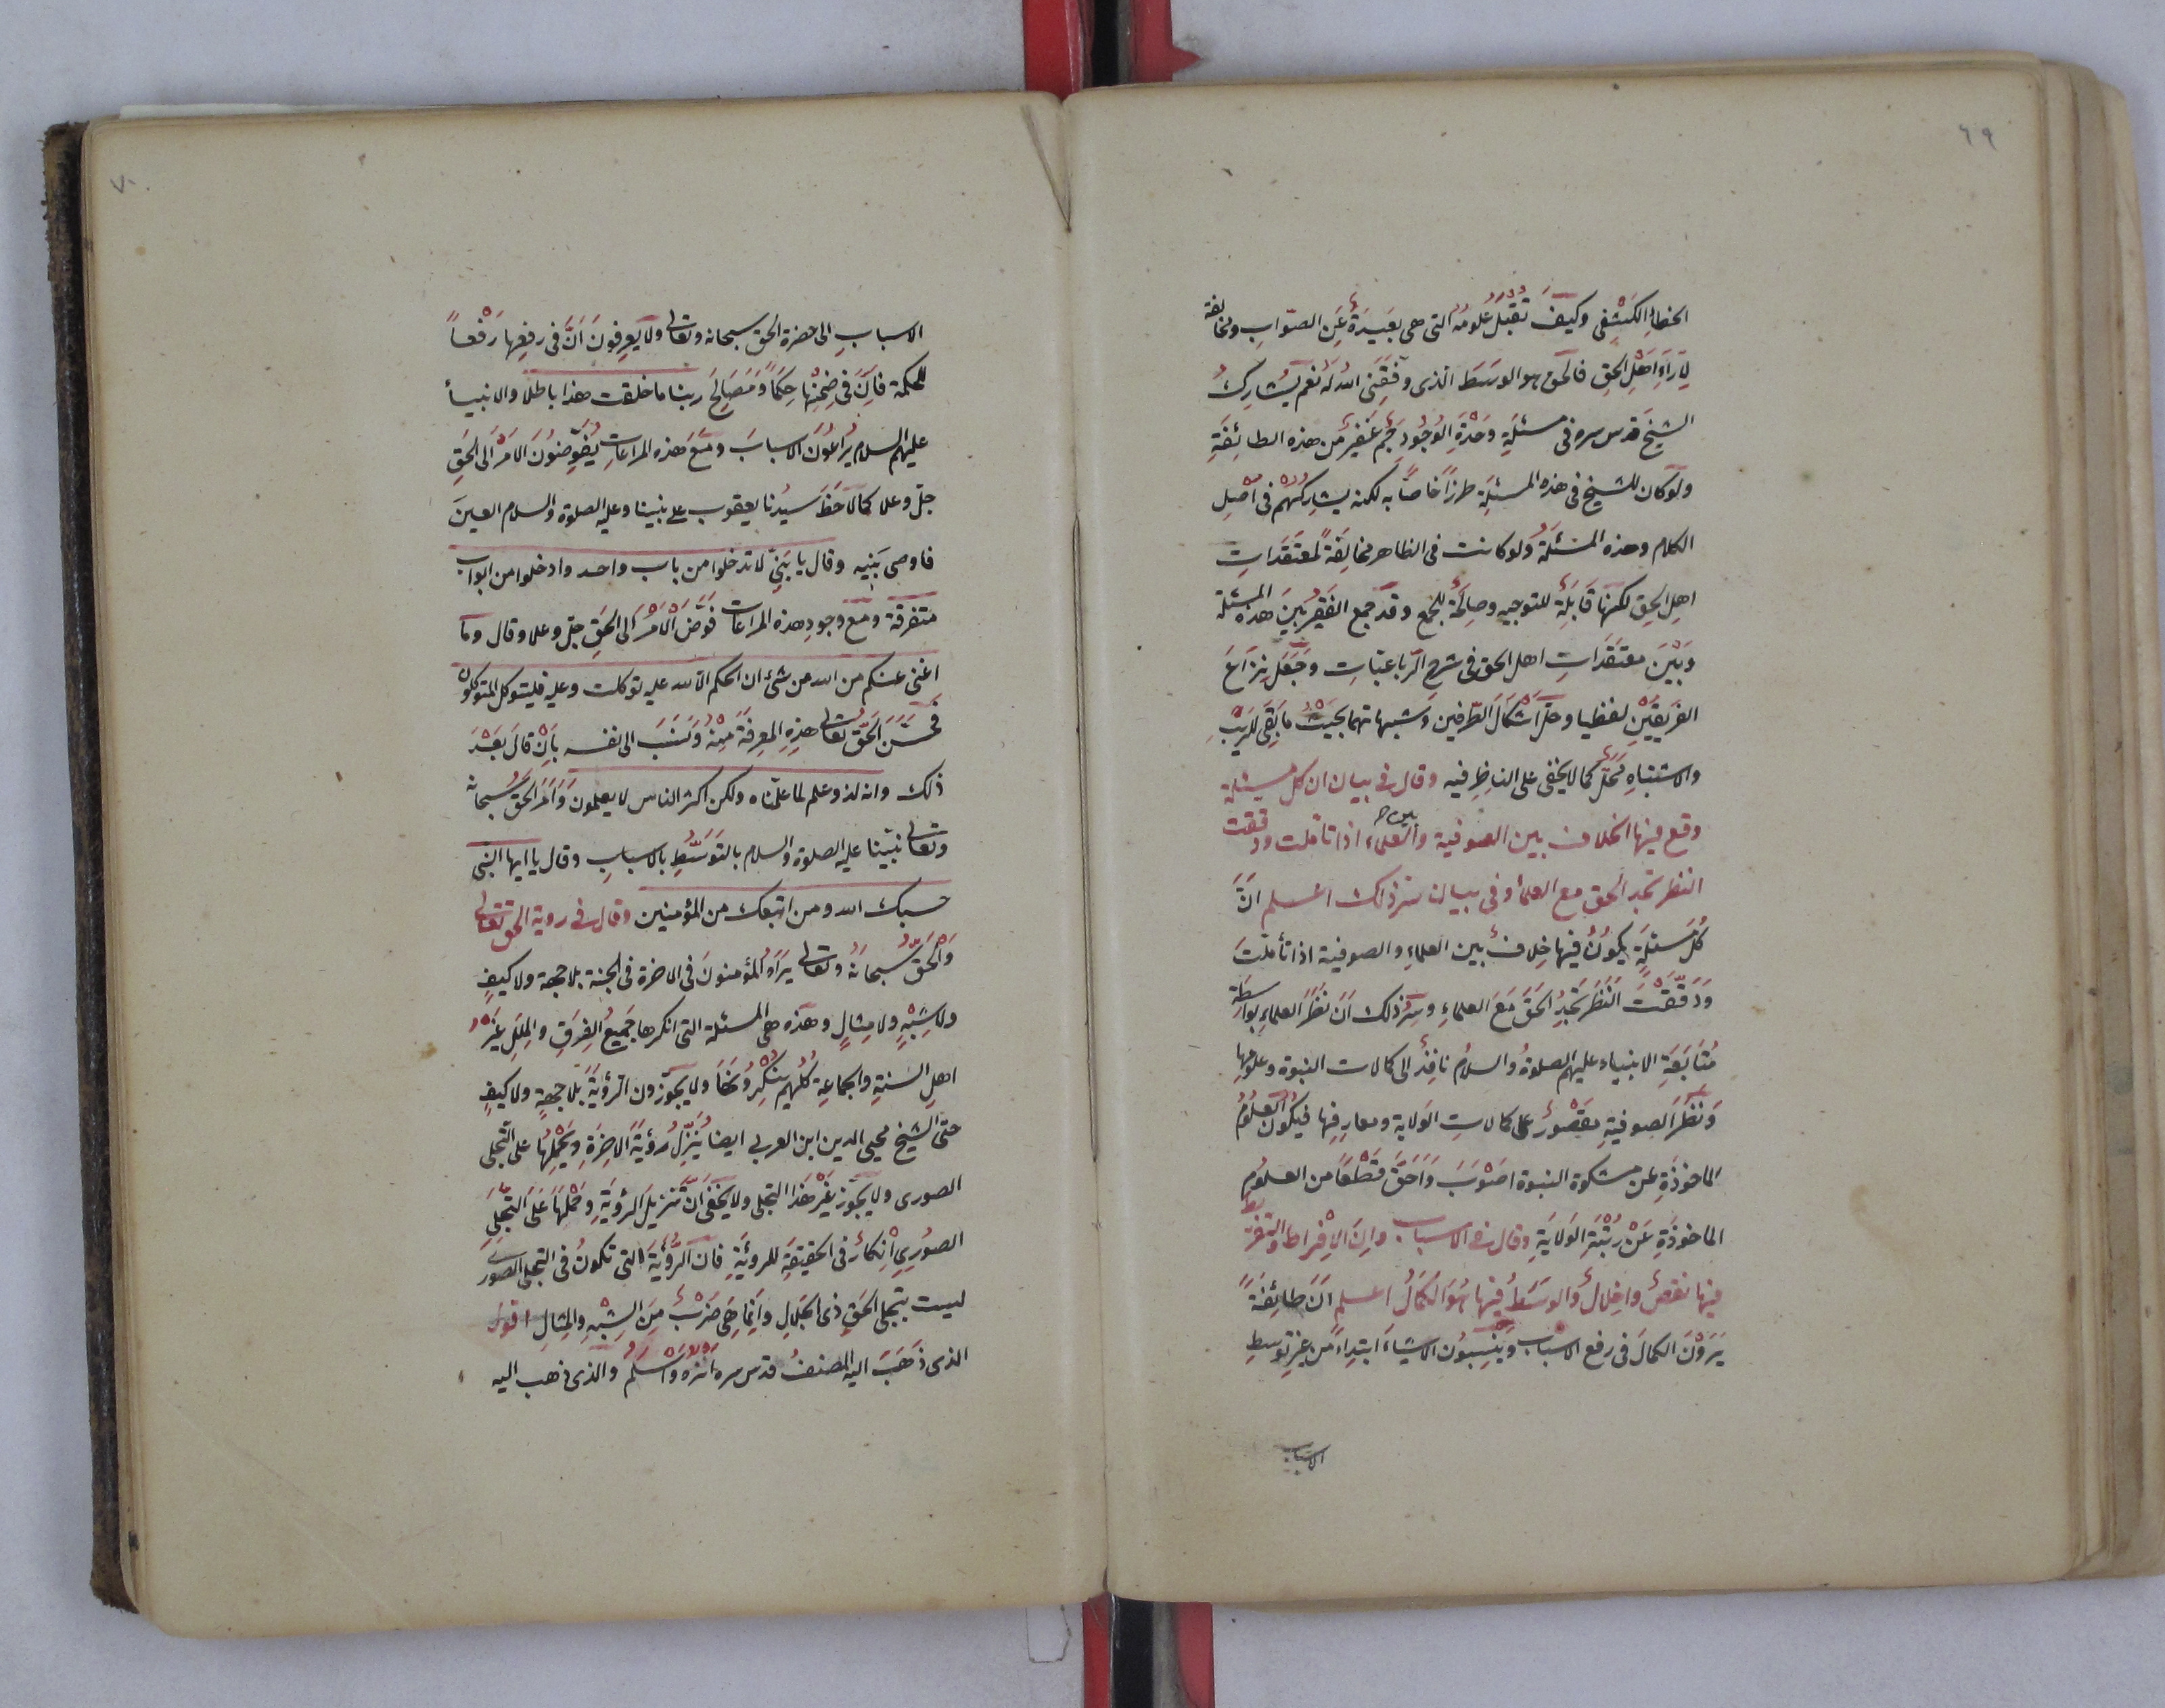 ٦٩
الخطاءِ الكَشْفِى وكيفَ تُقْبَلُ عُلُومُهُ التى هى بَعيدَةٌ عَنِ الصّوابِ ومخالِفة
لِآرَآءِ اَهْلِ الحقِ فالحق هو الوسَطَ الّذى وَفَّقَنِى اللهُ لَهُ نعم يُشَارِكُ
الشيخَ قدس سره فى مسئلَةِ وحْدَةِ الوُجُودِ جَمٌّ غفيرٌ من هذه الطائِفَةِ
ولَوكان للشيخ فى هذه المسئلَةِ طرزاً خاصّاً به لكنه يشارِكُهُم فى اَصْلِ
الكلام وهذه المَسْئَلَةُ ولو كانت فى الظاهر مخالِفَةً لمعتَقَداتِ
اهلِ الحقِ لكنها قَابِلَةٌ للتوجيهِ وصالِحَةٌ للجمع وقَد جمع الفَقِيْرُ بَينَ هذه المسْئَلة
وبَيْنَ معتقَدَاتِ اهل الحق فى شَرح الرُباعِيّاتِ وجَعَلَ نِزَاعَ
الفَرِيقَيْنِ لفظيا وحلّ اَشْكَالَ الطّرفين وشبهاتهما بحَيْثُ مابَقِىَ للرَيْبِ
والاشتباهِ مَحَلٌّ كما لا يخفى على الناظِرِ فيه وقال فى بيان ان كل مسئلة
وقع فيها الخلاف بين الصوفية وبين العلماء اذا تأملت ودققت
النظر تجد الحق مع العلماء وفى بيان سرّ ذلك اعلم انَّ
كُلَ مَسْئلَةٍ يكونُ فيها خِلافٌ بين العلماءِ والصوفية اذا تأملتَ
وَدَقَّقْتَ النَظَرَ تَجِدُ الحَقَ مَعَ العلماءِ وسِرُّ ذلك اَنَّ نَظَرَ العلماءِ بواسِطة
مُتَابَعَةِ الانبياء عليهم الصلوةُ والسلامُ نافِذٌ الى كمالات النبوة وعلومِها
وَنَظَرَ الصوفيةِ مقصُورٌ على كمالاتِ الوَلايةِ ومعارِفِها فيكُونُ العلُومُ
الماخوذَةِ عن مشكوة النبوة اصْوَبَ وَاَحَقَّ قَطْعاً من العلومِ
الماخوذَةِ عَنْ رُتْبَةِ الوَلايَةِ وقال فى الاسباب وان الاِفْراط والتفريط
فيها نقصٌ واخلالٌ والوسَطُ فيها هُوَ الكَمَالُ اعلم انَّ طائِفَةً
يَرَوْنَ الكمالَ فى رفع الاسباب ويَنْسِبُون الاشياءَ ابتِداءً من غيرِ توسط
الاسباب
٧٠
الاسبابِ الى حضرةِ الحق سبحانه وتعالى ولا يَعْرِفُونَ اَنَّ فى رفعِها رَفْعاً
للحكمة فاِنَّ فى ضِمْنِها حِكَماً ومَصَالِحَ ربنا ما خلقت هذا باطلا والانبياءُ
عليهم السلام يُرَاعُونَ الاسبابَ ومَعَ هذه المراعاتِ يُفَوِّضُونَ الاَمْرَ الَى الحَقِ
جلّ وعلا كما لاَحَظَ سَيدُنا يعقوب على نبينا وعليه الصلوة والسلام العينَ
فاوصى بَنِيهِ وقال يا بَنِىَّ لا تدخلوا من باب واحد وادخلوا من ابواب
متفرقة ومع وجودِ هذه المراعات فَوَّضَ الاَمْرَ الى الحَقِ جلّ وعلا وقال وما
اغنى عنكم من الله من شئ ان الحكم الا لله عليه توكلت وعليه فليتوكل المتوكلون
فَحَسَّنَ الحَقُّ تعالى هذِهِ المعرِفَةَ مِنْهُ وَنَسَبَ الى نفسه بِاَنْ قالَ بَعْدَ
ذلك وانه لذو علم لما علمناه ولكن اكثر الناس لا يعلمون وَاَمَرَ الحَقُّ سُبحانه
وتعالى نبيّنا عليه الصلوة والسلام بالتَوَسّطِ بالاسبابِ وقال يا ايها النبى
حسبك الله ومن اتبعك من المؤمنين وقال فى روية الحق تعالى
وَالحَقُّ سُبحانَهُ وتعالى يَرَاهُ المؤمنونَ فى الاخرة فى الجنة بلا جهة ولا كيفٍ
ولا شِبْهٍ ولا مِثالٍ وهذه هى المسئلة التى انكرها جَميعُ الفِرَقِ والمِلَلِ غيْرُ
اهلِ السَنةِ والجماعةِ كُلُهم يُنْكِرُونَها ولا يجوّزون الرؤيَةَ بلا جِهةٍ ولا كيفٍ
حتّى الشيخ محيى الدين ابن العربى ايضا يُنَزِّلُ رُؤيَةَ الاخِرَةِ ويَحْمِلُها على التَجلى
الصورى ولا يجَوّز غيْرَ هَذا التجلى ولا يَخْفَى اَنَّ تَنزِيلَ الرؤيَةِ وحَمْلَها عَلَى التَّجلِى
الصُورِى اِنكارٌ فى الحَقيقةِ للرويَةِ فان الرُؤيَةَ التى تكونُ فى التجلى الصورى
ليست بتجلى الحَقِ ذى الجَلالِ وانما هِىَ ضَرْبٌ مِنَ الشِبْهِ والمِثالِ اقول
الذى ذَهَبَ اليه المصنفُ قدس سره اَنْزَه واَسْلَمُ والذى ذهب اليه